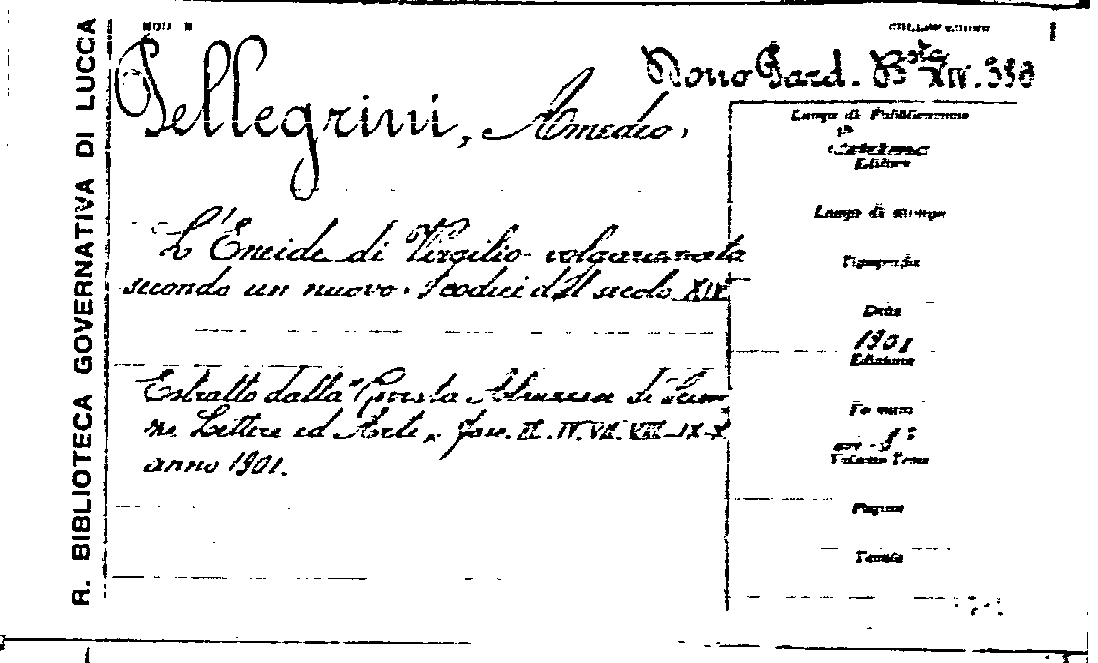 R. BIBLIOTECA GOVERNATIVA DI LUCCA
Dono Pard. B.sta XIV. 358
Pellegrini, Amedeo.
L'Eneide di Virgilio volgarizzata
secondo un nuovo codice del secolo XIV
Estratto dalla "Rivista Abruzzese di Scien
ze Lettere ed Arti" fasc. IV. VII. VIII-IX-X
anno 1901.
Luogo di Pubblicazione
Teramo
Editore
Luogo di stampa
Tipografia
Data
1901
Edizione
Formato
8º
Volume Tomo
Pagine
Tavole